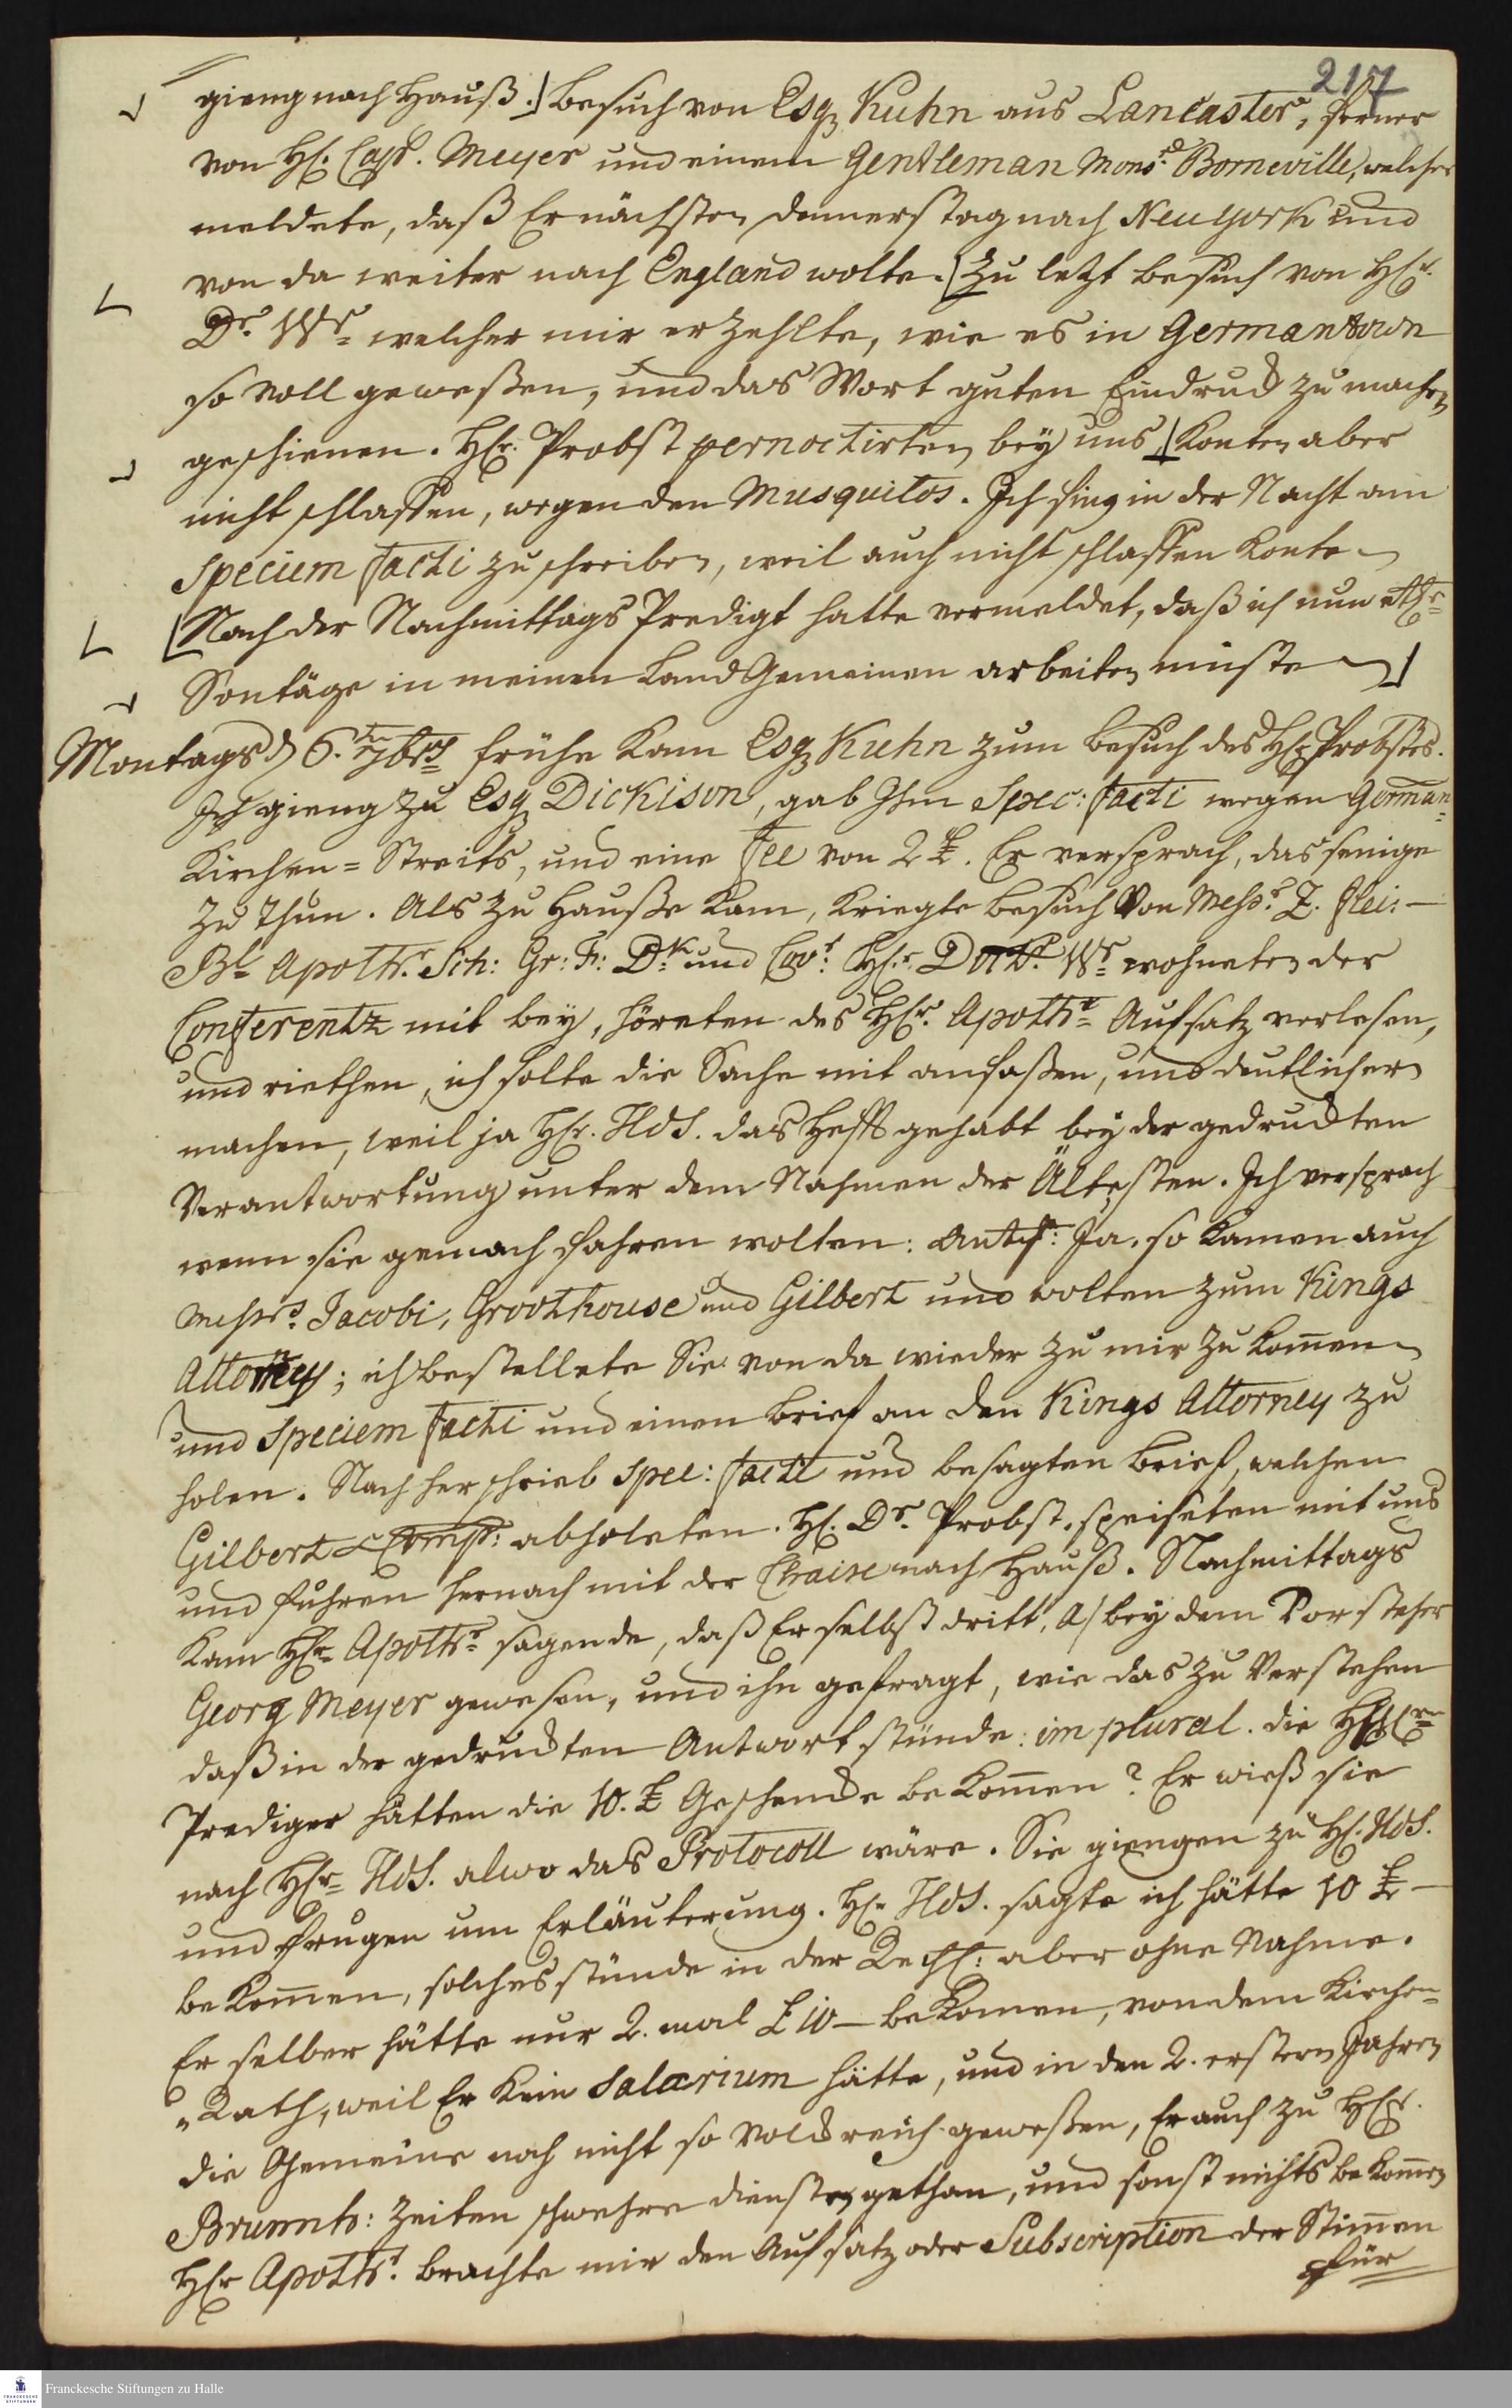 217
gieng nach Hauß.] Besuch von Esqr Kuhn aus Lancaster, ferner
von H. Capt. Meyer und einem Gentleman Mons.r Borneville, welcher
meldete, daß Er nächsten Donnerstag nach Neuyork und
von da weiter nach England wolte. [Zu letzt Besuch von H
Dr. Wr. welcher mir erzehlte, wie es in Germantown
so voll geweßen, und das Wort guten Eindruck zu machen
geschienen. Hr. Probst pernoctirten bey uns] Konten aber
nicht schlaffen, wegen den Musquitos. Ich fing in der Nacht an
Speciem facti zu schreiben, weil auch nicht schlaffen Konte
[Nach der Nachmittags Predigt hatte vermeldet, daß ich nun
Sontäge in meinen Land Gemeinen arbeiten müste]
Montags d 6.ten 7br frühe Kam Esqr Kuhn zum Besuch des H. Probstes.
Ich gieng zu Esqr Dickison, gab Ihm Spec: facti wegen German
Kirchen = Streits, und eine fee von 2 £. Er versprach, das seinige
zu thun. Als zu Hauße Kam, Kriegte Besuch von Mess.rs Z. flei:
Bl Apoth.r Sch: Gr: Fr: Dk und H.r Doct.r Wr. wohneten der
Conferentz mit bey, höreten des H. Apothr. Aufsatz verlesen,
und riethen, ich solte die Sache mit anfaßen, und deutlicher
machen, weil ja Hr. Hds. das Hefft gehabt bey der gedruckten
Verantwortung unter dem Nahmen der Ältesten. Ich versprach
wenn sie gemach fahren wolten: Antw: Ja. so Kamen auch
Messrs. Jacobi, Groothouse und Gilbert und wolten zum Kings
Attorney; ich bestellete Sie von da wieder zu mir zu Kom̅en
und Speciem facti und einen Brief an den Kings Attorney zu
holen. Nachher schrieb Spec: facti und besagten Brief, welchen
Gilbert & Comp: abholeten. H. Dr. Probst. speiseten mit uns
und fuhren hernach mit der Chaise nach Hauß. Nachmittags
Kam Hr. Apothr. sagende, daß Er selbst dritt, a) bey dem Vorsteher
Georg Meyer gewesen, und ihn gefragt, wie das zu verstehen
daß in der gedruckten Antwort stünde: im plural. die
Prediger hätten die 10. £ Geschencke beKom̅en? Er wieß sie
nach Hr. Hds. alwo das Protocoll wäre. Sie giengen zu H. Hds.
und frugen um Erläuterung. Hr. Hds. sagte ich hätte 10 £ –
beKom̅en, solches stünde in der Rech: aber ohne Nahme.
Er selber hätte nur 2. mal £ 10 – beKomen, von dem Kirchen=
Rath, weil Er Kein Salarium hätte, und in den 2. erstern Jahren
die Gemeine noch nicht so Volckreich geweßen, Er auch zu H
Brunnh: Zeiten schwehre dienste gethan, und sonst nichts beKom̅en
Hr Apoth.r brachte mir den Aufsatz oder Subscription der Stim̅en
für
Franckesche Stiftungen zu Halle